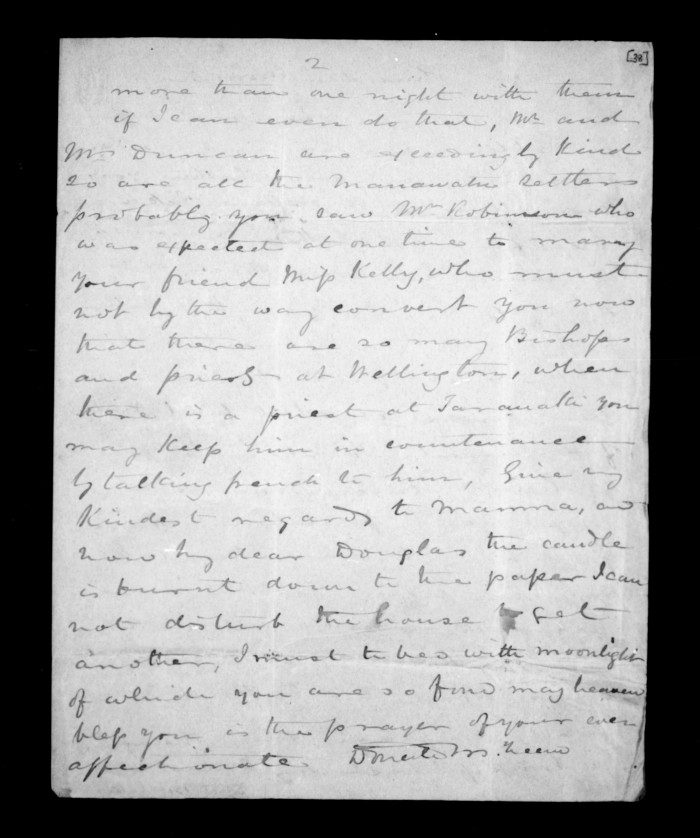 [38]
2
more than one night with them
if I can even do that, Mr and
Mrs Duncan are exceedingly kind
so are all the Manawatu settlers
probably you saw Mr Robinson who
was expected at one time to marry
your friend Miss Kelly, who must
not by the way convert you now
that there are so many Bishops
and priests at Wellington, when
there is a priest at Taranaki you
may keep him in countenance
by talking french to him, Give my
Kindest regards to Mamma, and
now my dear Douglas the candle
is burnt down to the paper I can
not disturb the house to get
another, I must to bed with moonlight
of which you are so fond may heaven
bless you is the prayer of your ever
affectionate Donald